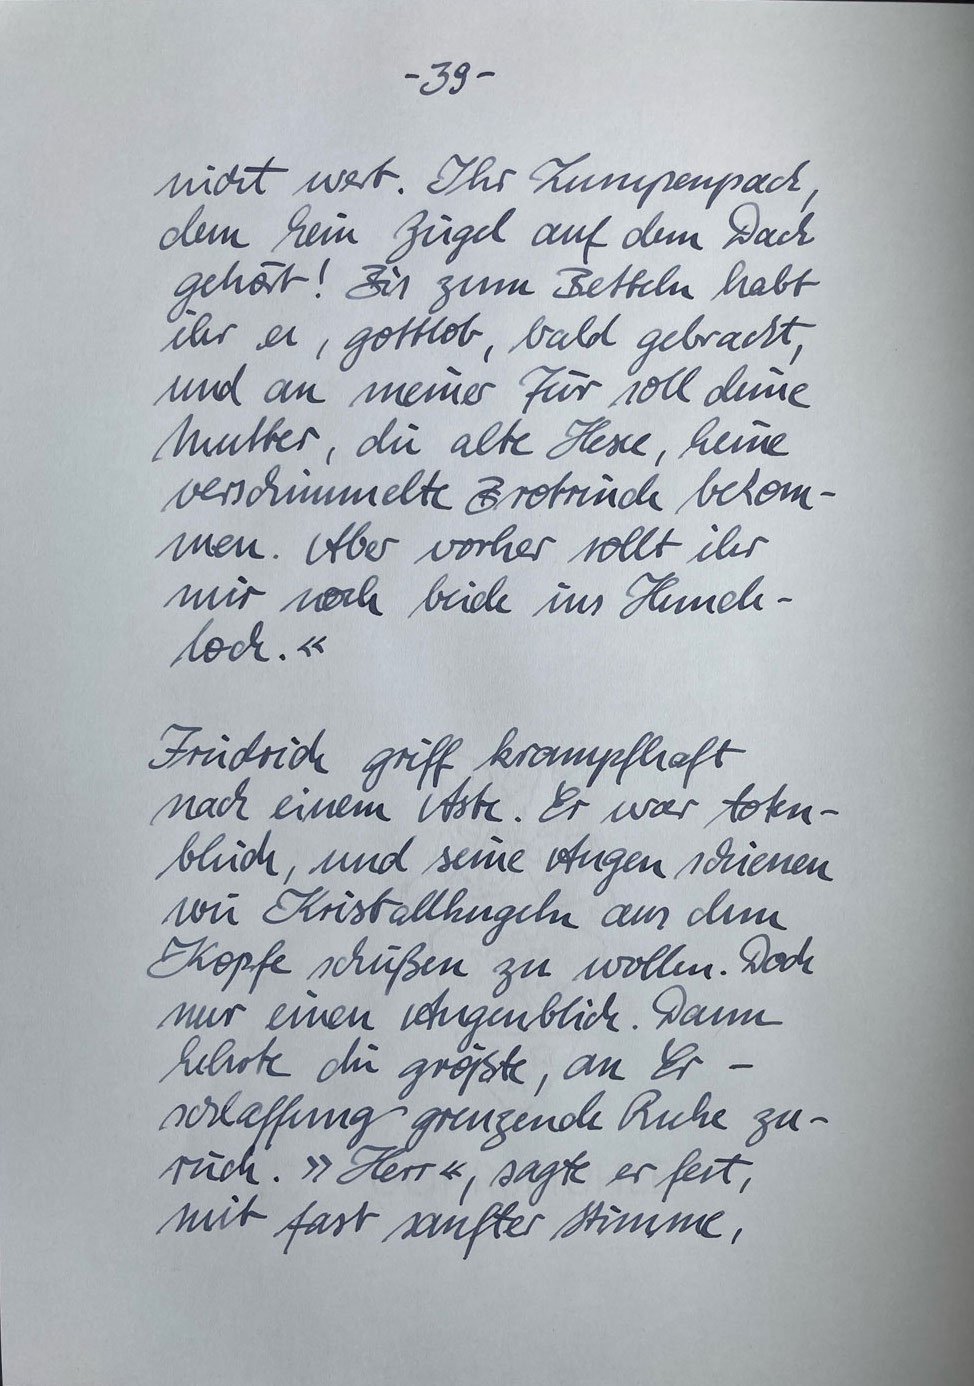 -39-
nicht wert. Ihr Lumpenpack,
dem kein Zigel auf dem Dach
gehört! Bis zum Betteln habt
ihr es, gottlob, bald gebracht,
und an meiner Tür soll deine
Mutter, die alte Hexe, keine
verschimmelte Brotrinde bekom-
men. Aber vorher sollt ihr
mir noch beide ins Hunde-
loch.«
Friedrich griff krampfhaft
nach einem Aste. Er war toten-
bleich, und seine Augen schienen
wie Kristallkugeln aus dem
Kopfe schießen zu wollen. Doch
nur einen Augenblick. Dann
kehrte die größte, an Er-
schlaffung grenzende Ruhe zu-
rück. »Herr«, sagte er fest,
mit fast sanfter Stimme,